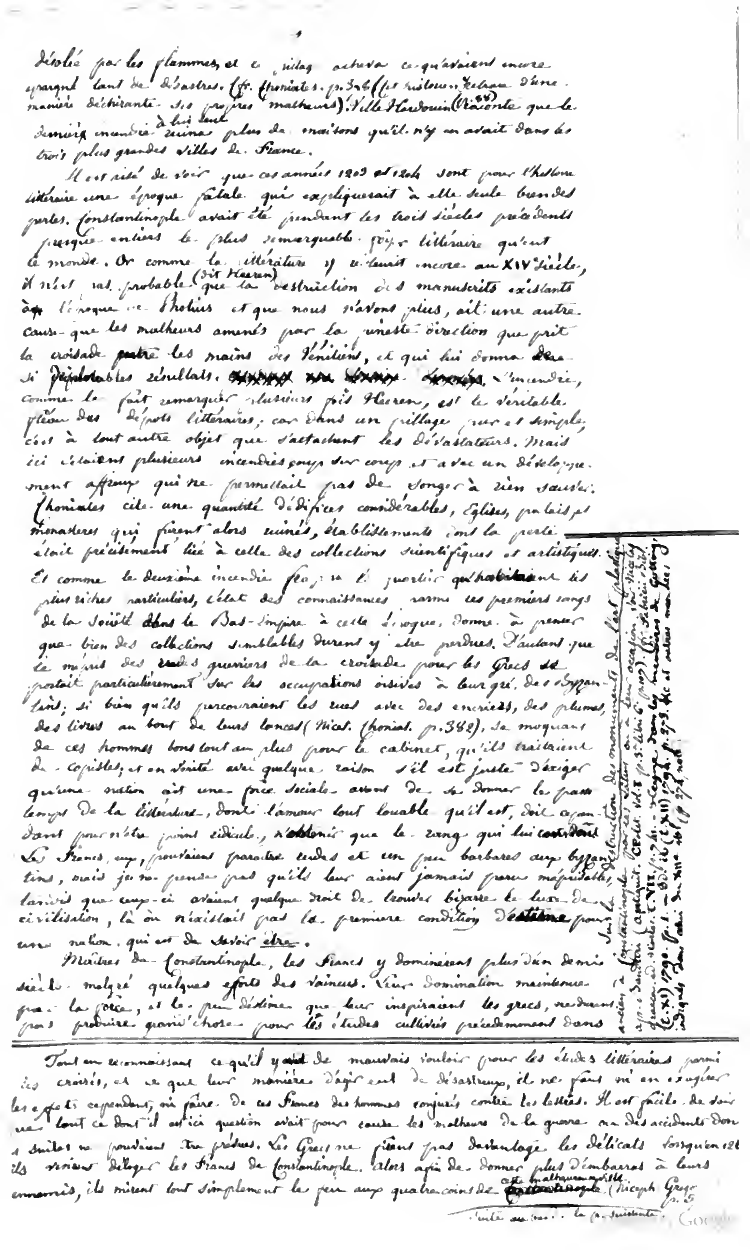 désolée par les flammes, et ce pillage acheva ce qu'avaient encore
épargné tant de désastres. (Cfr. Choniates. p. 346 (cet historien retrace d'une
manière déchirante ses propres malheurs). Ville Hardouin raconte que le
dernier incendie à lui seul ruina plus de maisons qu'il n'y en avait dans les
trois plus grandes villes de France.
Il est aisé de voir que ces années 1203 et 1204 sont pour l'histoire
littéraire une époque fatale qui expliquerait à elle seule bien des
pertes. Constantinople avait été pendant les trois siècles précédents
presque entiers le plus remarquable foyer littéraire qu'eut
le monde. Or comme la littérature y refleurit encore au XIVe siècle,
il n'est pas probable (dit Heeren) que la destruction des manuscrits existants
à l'époque de Photius et que nous n'avons plus, ait une autre
cause que les malheurs amenés par la funeste direction que prit
la croisade entre les mains des Vénitiens, et qui lui donna de
si déplorables résultats. L'incendie,
comme le fait remarquer plusieurs fois Heeren, est le véritable
fléau des dépots littéraires; car dans un pillage pur et simple,
c'est à tout autre objet que s'attachent les dévastateurs. Mais
ici c'étaient plusieurs incendies coup sur coup et avec un développe-
ment affreux qui ne permettait pas de songer à rien sauver.
Choniates cite une quantité d'édifices considérables, Eglises, palais, et
monastères qui furent alors ruinés, établissements dont la perte
était précisément liée à celle des collections scientifiques et artistiques.
Et comme le deuxième incendie frappa le quartier qu'habitaient les
plus riches particuliers, l'état des connaissances parmi les premiers rangs
de la Société dans le Bas-Empire à cette époque, donne à penser
que bien des collections semblables durent y etre perdues. D'autant que
le mépris des rudes guerriers de la croisade pour les Grecs se
portait particulièrement sur les occupations oisives à leur gré, des Byzan-
tins; si bien qu'ils parcouraient les rues avec des encriers, des plumes,
des livres au bout de leurs lances (Nicet. Choniat. p. 382), se moquant
de ces hommes bons tout au plus pour le cabinet, qu'ils traitaient
de copistes; et en vérité avec quelque raison s'il est juste d'exiger
qu'une nation ait une force sociale avant de se donner le passe
temps de la littérature, dont l'amour tout louable qu'il est, doit cepen-
dant pour n'être point ridicule, n'obtenir que le rang qui lui est dû.
Les Francs, eux, pouvaient paraitre rudes et un peu barbares aux byzan-
tins, mais je ne pense pas qu'ils leur aient jamais paru méprisables,
tandis que ceux-ci avaient quelque droit de trouver bizarre le luxe de
civilisation, là où n'existait pas la première condition d'estime pour
une nation, qui est de savoir être.
Maîtres de Constantinople, les Francs y dominèrent plus d'un demi
siècle malgré quelques efforts des vaincus. Leur domination maintenue
par la force, et le peu d'estime que leur inspiraient les grecs, ne durent
pas produire grand'chose pour les études cultivées précédemment dans
Sur la destruction des monuments de l'art plastique
Tout en reconnaissant ce qu'il y eut de mauvais vouloir pour les études littéraires parmi
les croisés, et ce que leur manière d'agir eut de désastreux, il ne faut ni en exagérer
les effets cependant, ni faire de ces Francs des hommes conjurés contre les lettres. Il est facile de voir
que tout ce dont il est ici question avait pour cause les malheurs de la guerre ou des accidents don
s suites ne pouvaient être prévues. Les Grecs ne firent pas davantage les délicats lorsqu'en 126
ils vinrent déloger les Francs de Constantinople. Alors afin de donner plus d'embarras à leurs
ennemis, ils mirent tout simplement le feu aux quatre coins de cette malheureuse ville. (Niceph. Grego
p. 5
Suite au bas de la p. suivante.
Google